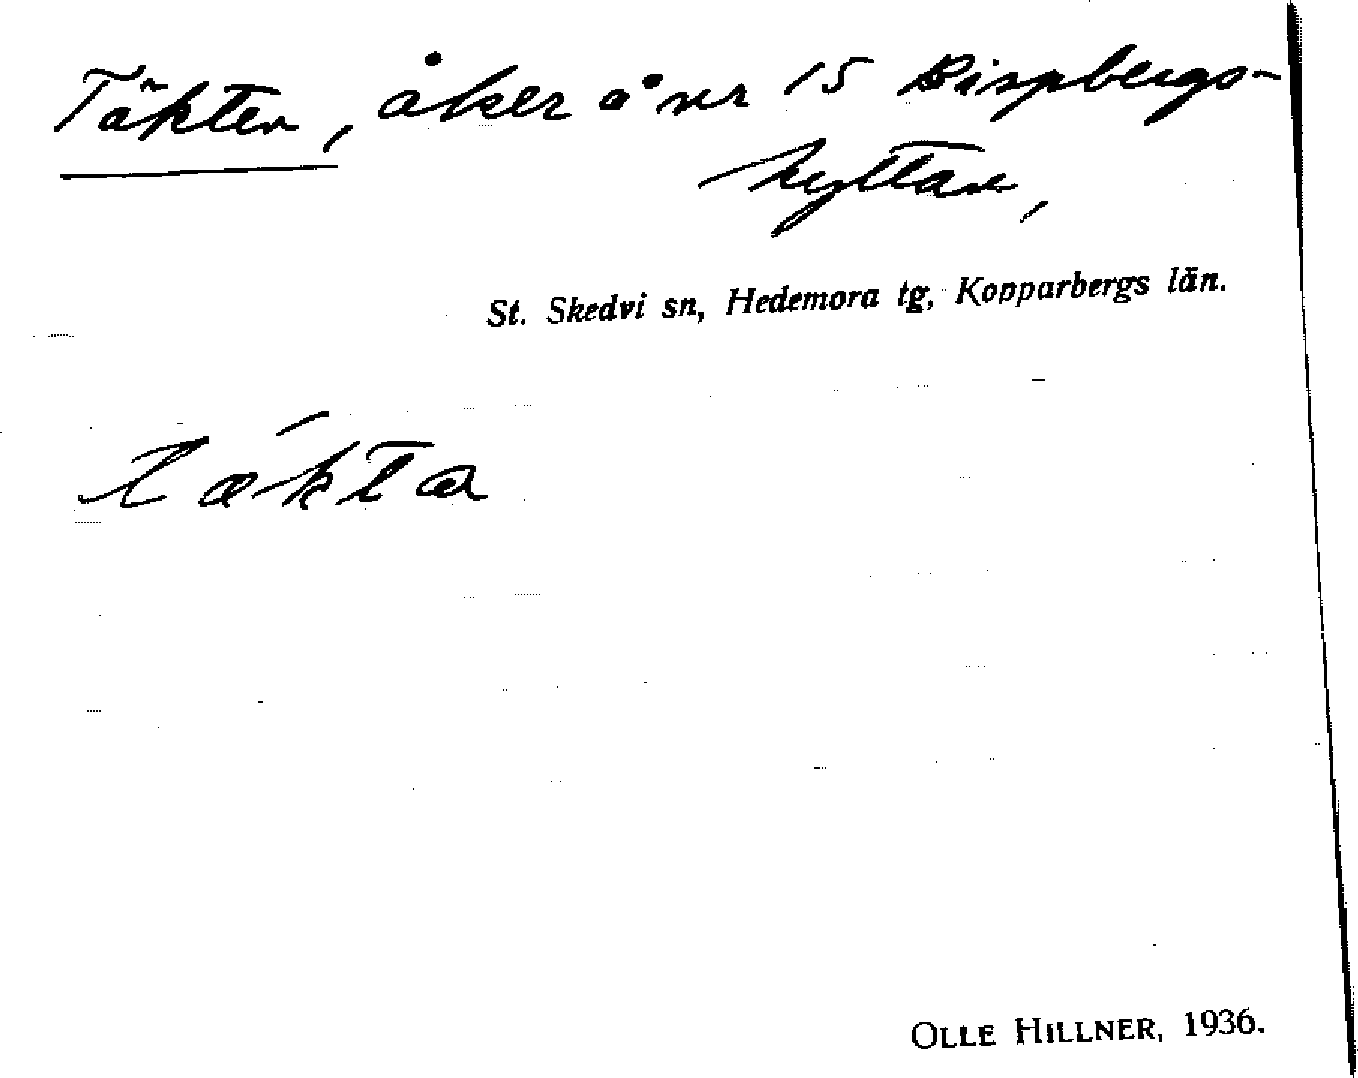 Täkten, åker å nr 15 Bispbergs-
hyttan,
St. Skedvi sn, Hedemora tg, Kopparbergs län.
tækta
OLLE HILLNER, 1936.